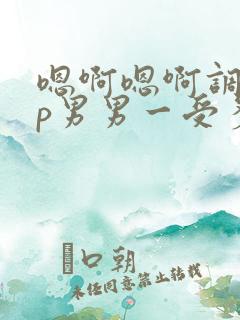 嗯啊嗯啊調
p男男一受
口朝
未经同意禁止转载